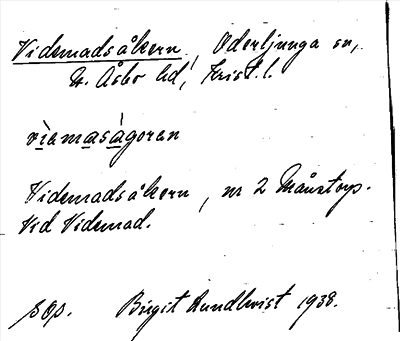 Videmadsåkern, Oderljunga sn,
N. Åsbo hd, Krist. l.
vìemasàgoran
Videmadsåkern, nr 2 Månstorp.
Vid Videmad.
sOp. Birgit Lundkvist 1938.